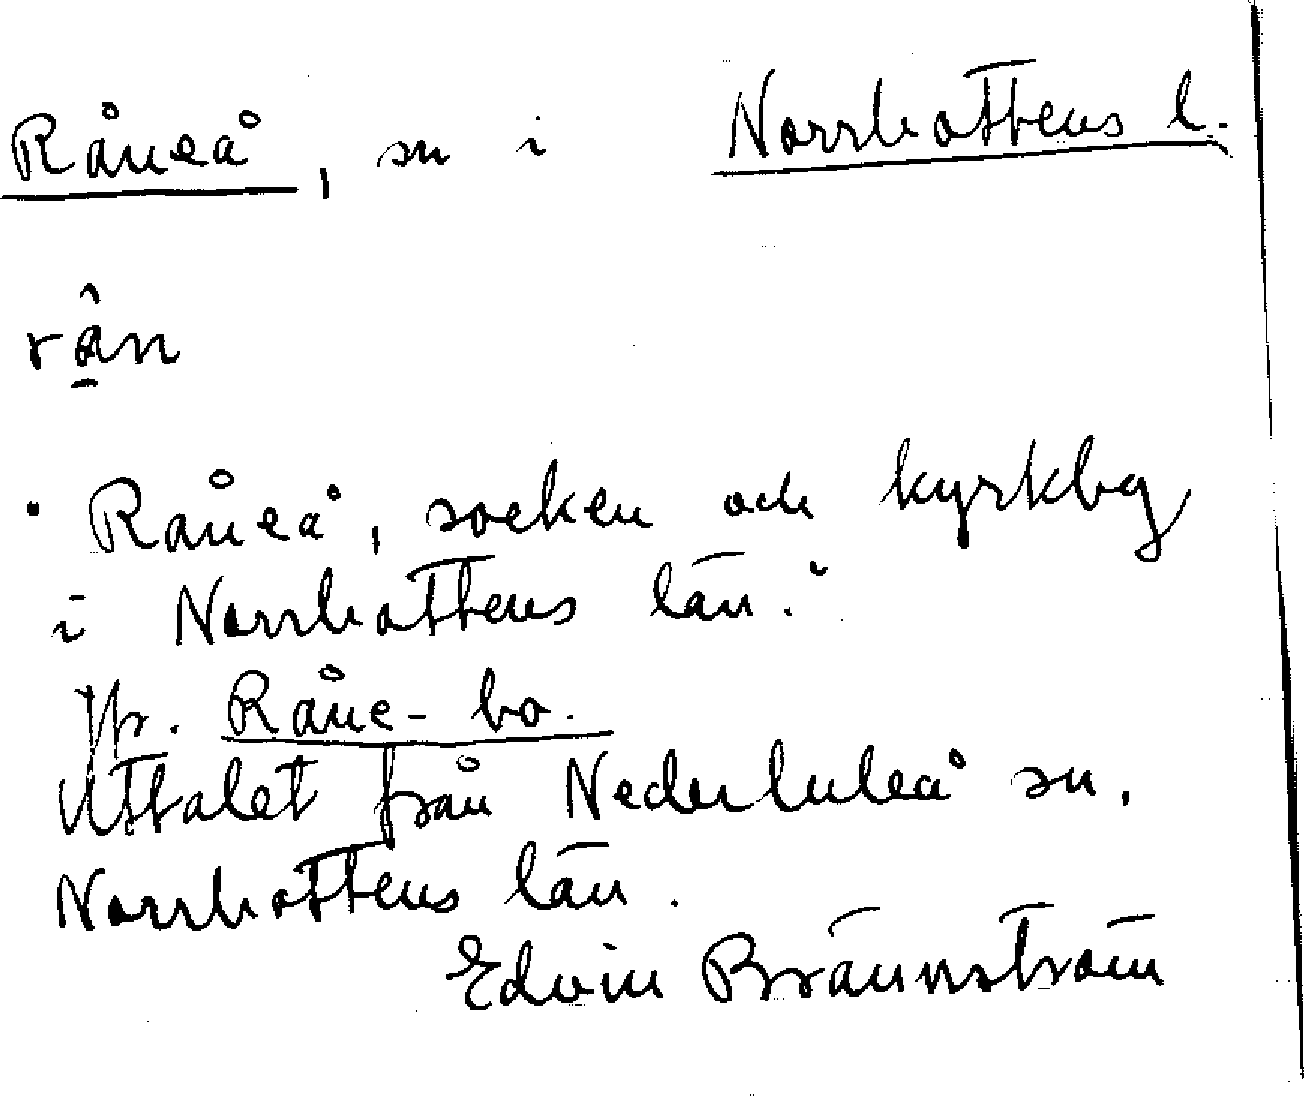 Råneå, sn i Norrbottens l.
râ̱n
"Råneå, socken och kyrkby
i Norrbottens län."
Jfr. Råne-bo.
Uttalet från Nederluleå sn,
Norrbottens län.
Edvin Brännström